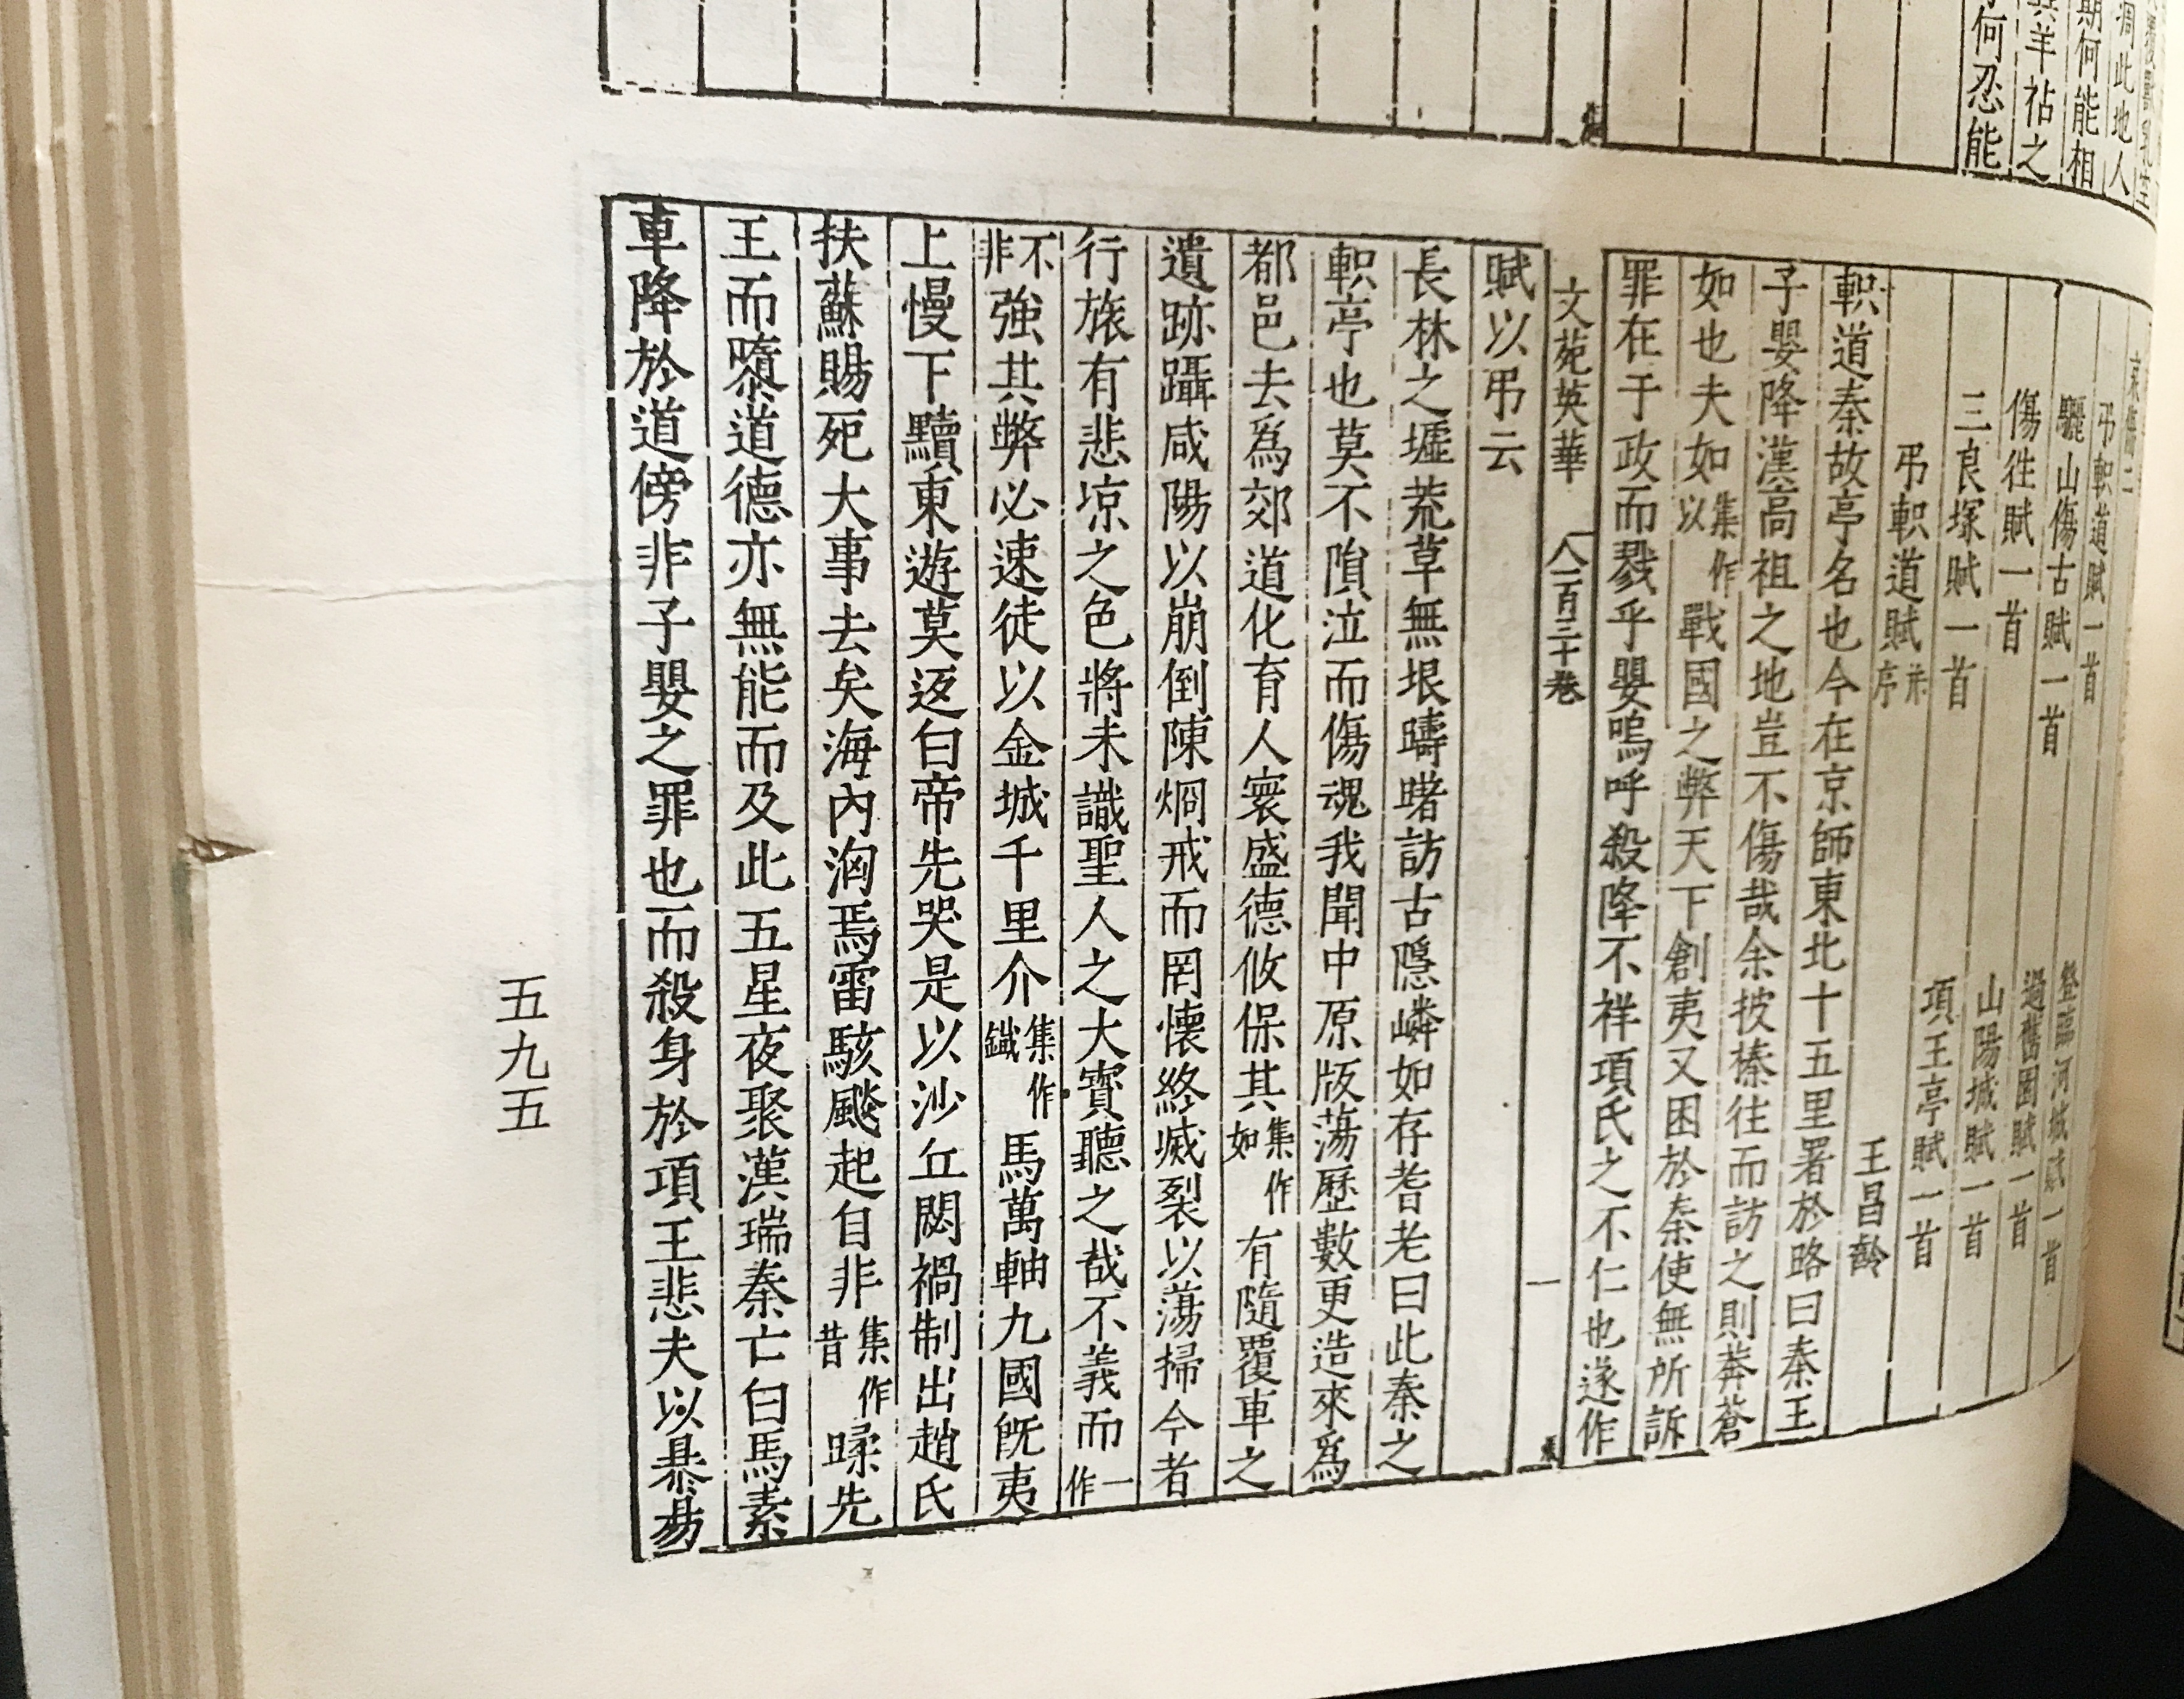 期何能相
羊祜之
何忍能
弔軹道賦一首
登臨河城賦一首
驪山傷古賦一首
過舊園賦一首
傷徃賦一首
山陽城賦一首
三良塚賦一首
項王亭賦一首
弔軹道賦并序
王昌齡
軹道秦故亭名也今在京師東北十五里署於路曰秦王
子嬰降漢高祖之地豈不傷哉余披榛往而訪之則莽蒼
如也夫如集作以戰國之弊天下創夷又困於秦使無所訴
罪在于政而戮乎嬰嗚呼殺降不祥項氏之不仁也遂作
文苑英華 八一百三十卷 一
賦以弔云
長林之墟荒草無垠疇曙訪古隱嶙如存耆老曰此秦之
軹亭也莫不隕泣而傷魂我聞中原版蕩歷數更造來爲
都邑去爲郊道化育人寰盛德攸保其集作如有隨覆車之
遺跡躡咸陽以崩倒陳烱戒而罔懷終威裂以蕩掃今者
行旅有悲凉之色將未識聖人之大寶聽之哉不義而一作
不非強其弊必速徒以金城千里介集作鐵馬萬軸九國旣夷
上慢下黷東遊莫返白帝先哭是以沙丘閟禍制出趙氏
扶蘇賜死大事去矣海內洶焉雷駭飈起自非集作昔蹂先
王而隳道德亦無能而及此五星夜聚漢瑞秦亡白馬素
車降於道傍非子嬰之罪也而殺身於項王悲夫以暴易
五九五